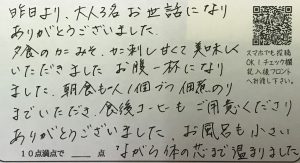 昨日より、大人3名お世話になり
ありがとうございました。
夕食のかにみそ、かに刺し甘くて美味しく
いただきました お腹一杯になり
ました、朝食も人1個づつ佃煮のり
までいただき、食後コーヒーもご用意くださり
ありがとうございました、お風呂も小さい
ながら体の芯まで温まりました
10点満点で____点
スマホでも投稿
OK！チェック欄
記入後フロント
へお渡し下さい。